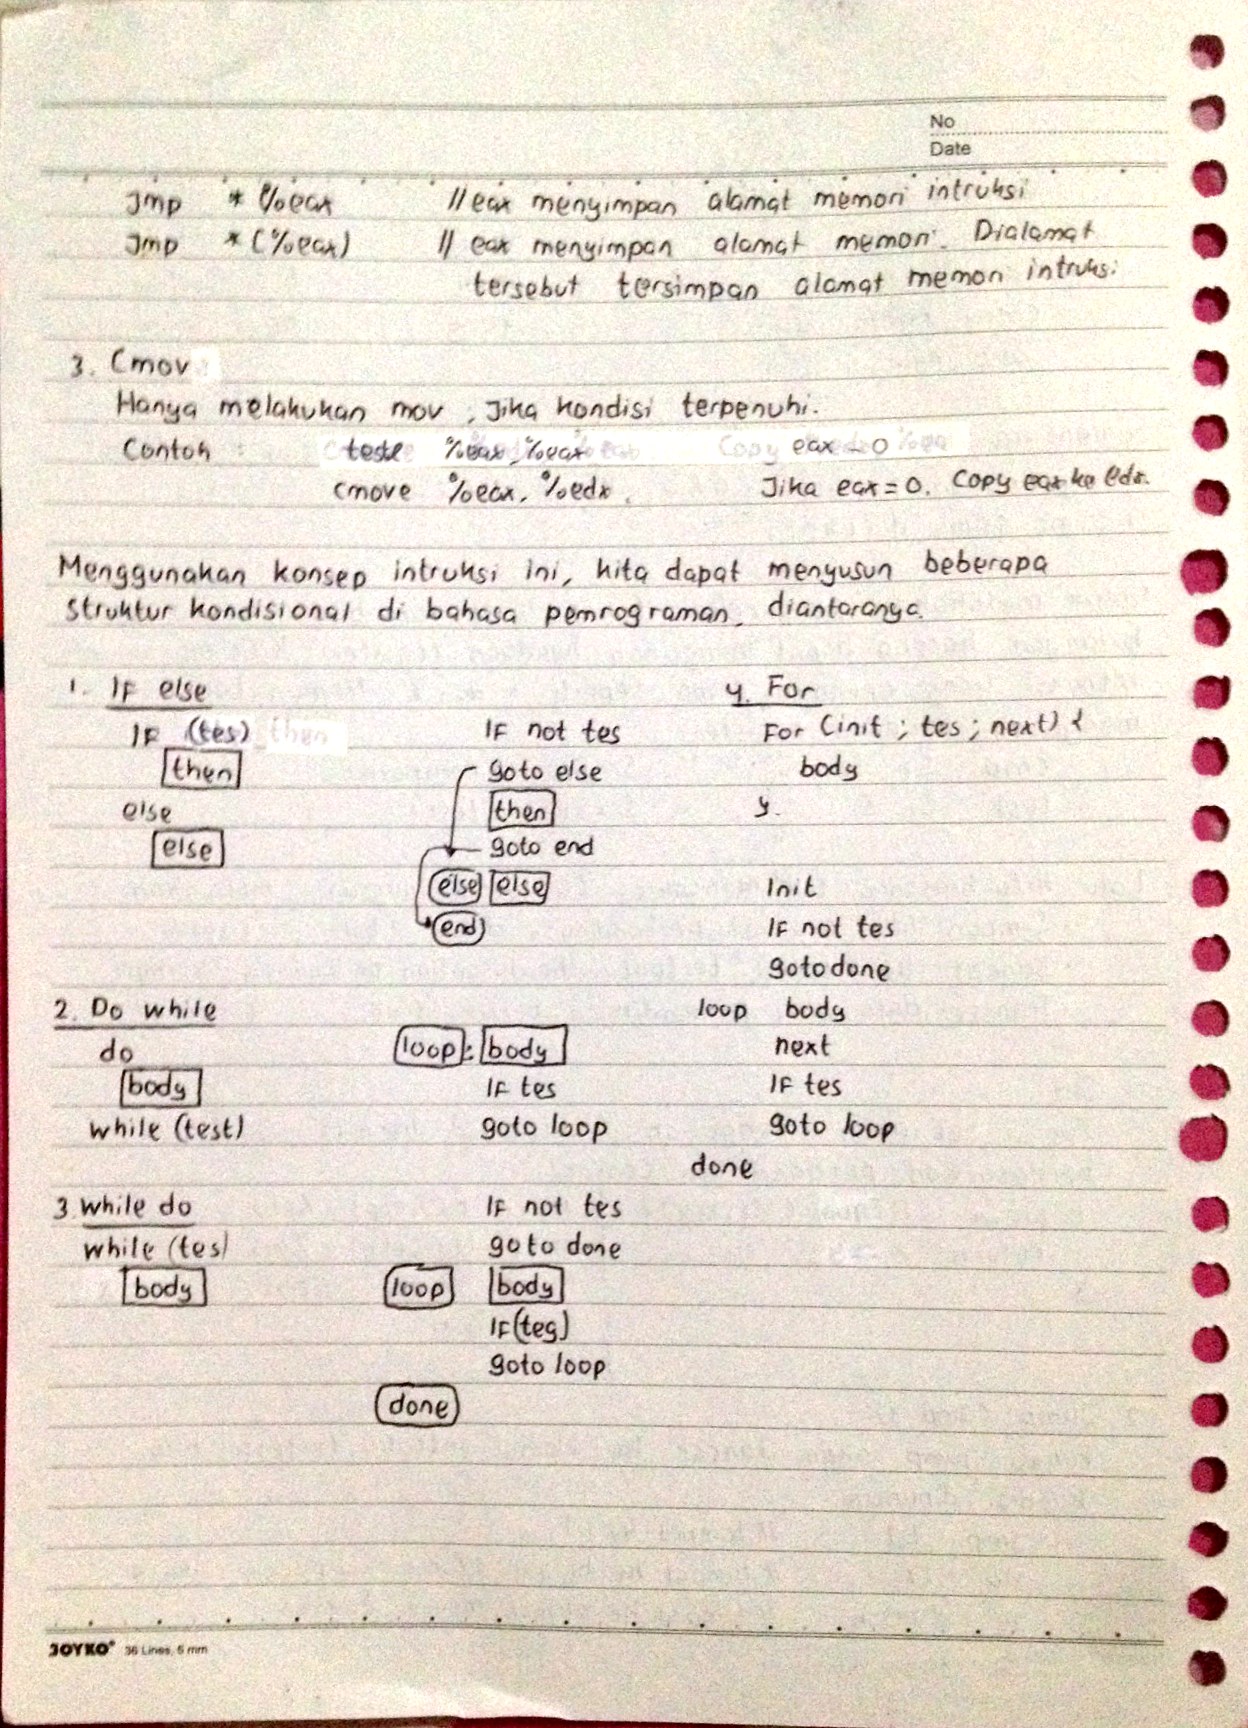 No
Date
Jmp * %eax // eax menyimpan alamat memori intruksi
Jmp * (%eax) // eax menyimpan alamat memori. Dialamat
tersebut tersimpan alamat memori intruksi
3. Cmov
Hanya melakukan mov, jika kondisi terpenuhi.
Contoh : testl %eax, %eax eax - 0
cmove %eax, %edx. Jika eax = 0. Copy eax ke edx.
Menggunakan konsep intruksi ini, kita dapat menyusun beberapa
struktur kondisional di bahasa pemrograman, diantaranya.
1. IF else
IF (tes)
then
else
else
IF not tes
goto else
then
goto end
else else
end
2. Do while
do
body
while (test)
loop : body
IF tes
goto loop
3 while do
while (tes)
body
IF not tes
goto done
loop body
IF (tes)
goto loop
done
4. For
For (init ; tes ; next) {
body
}.
Init
IF not tes
goto done
loop body
next
IF tes
goto loop
done
JOYKO 36 Lines, 6 mm